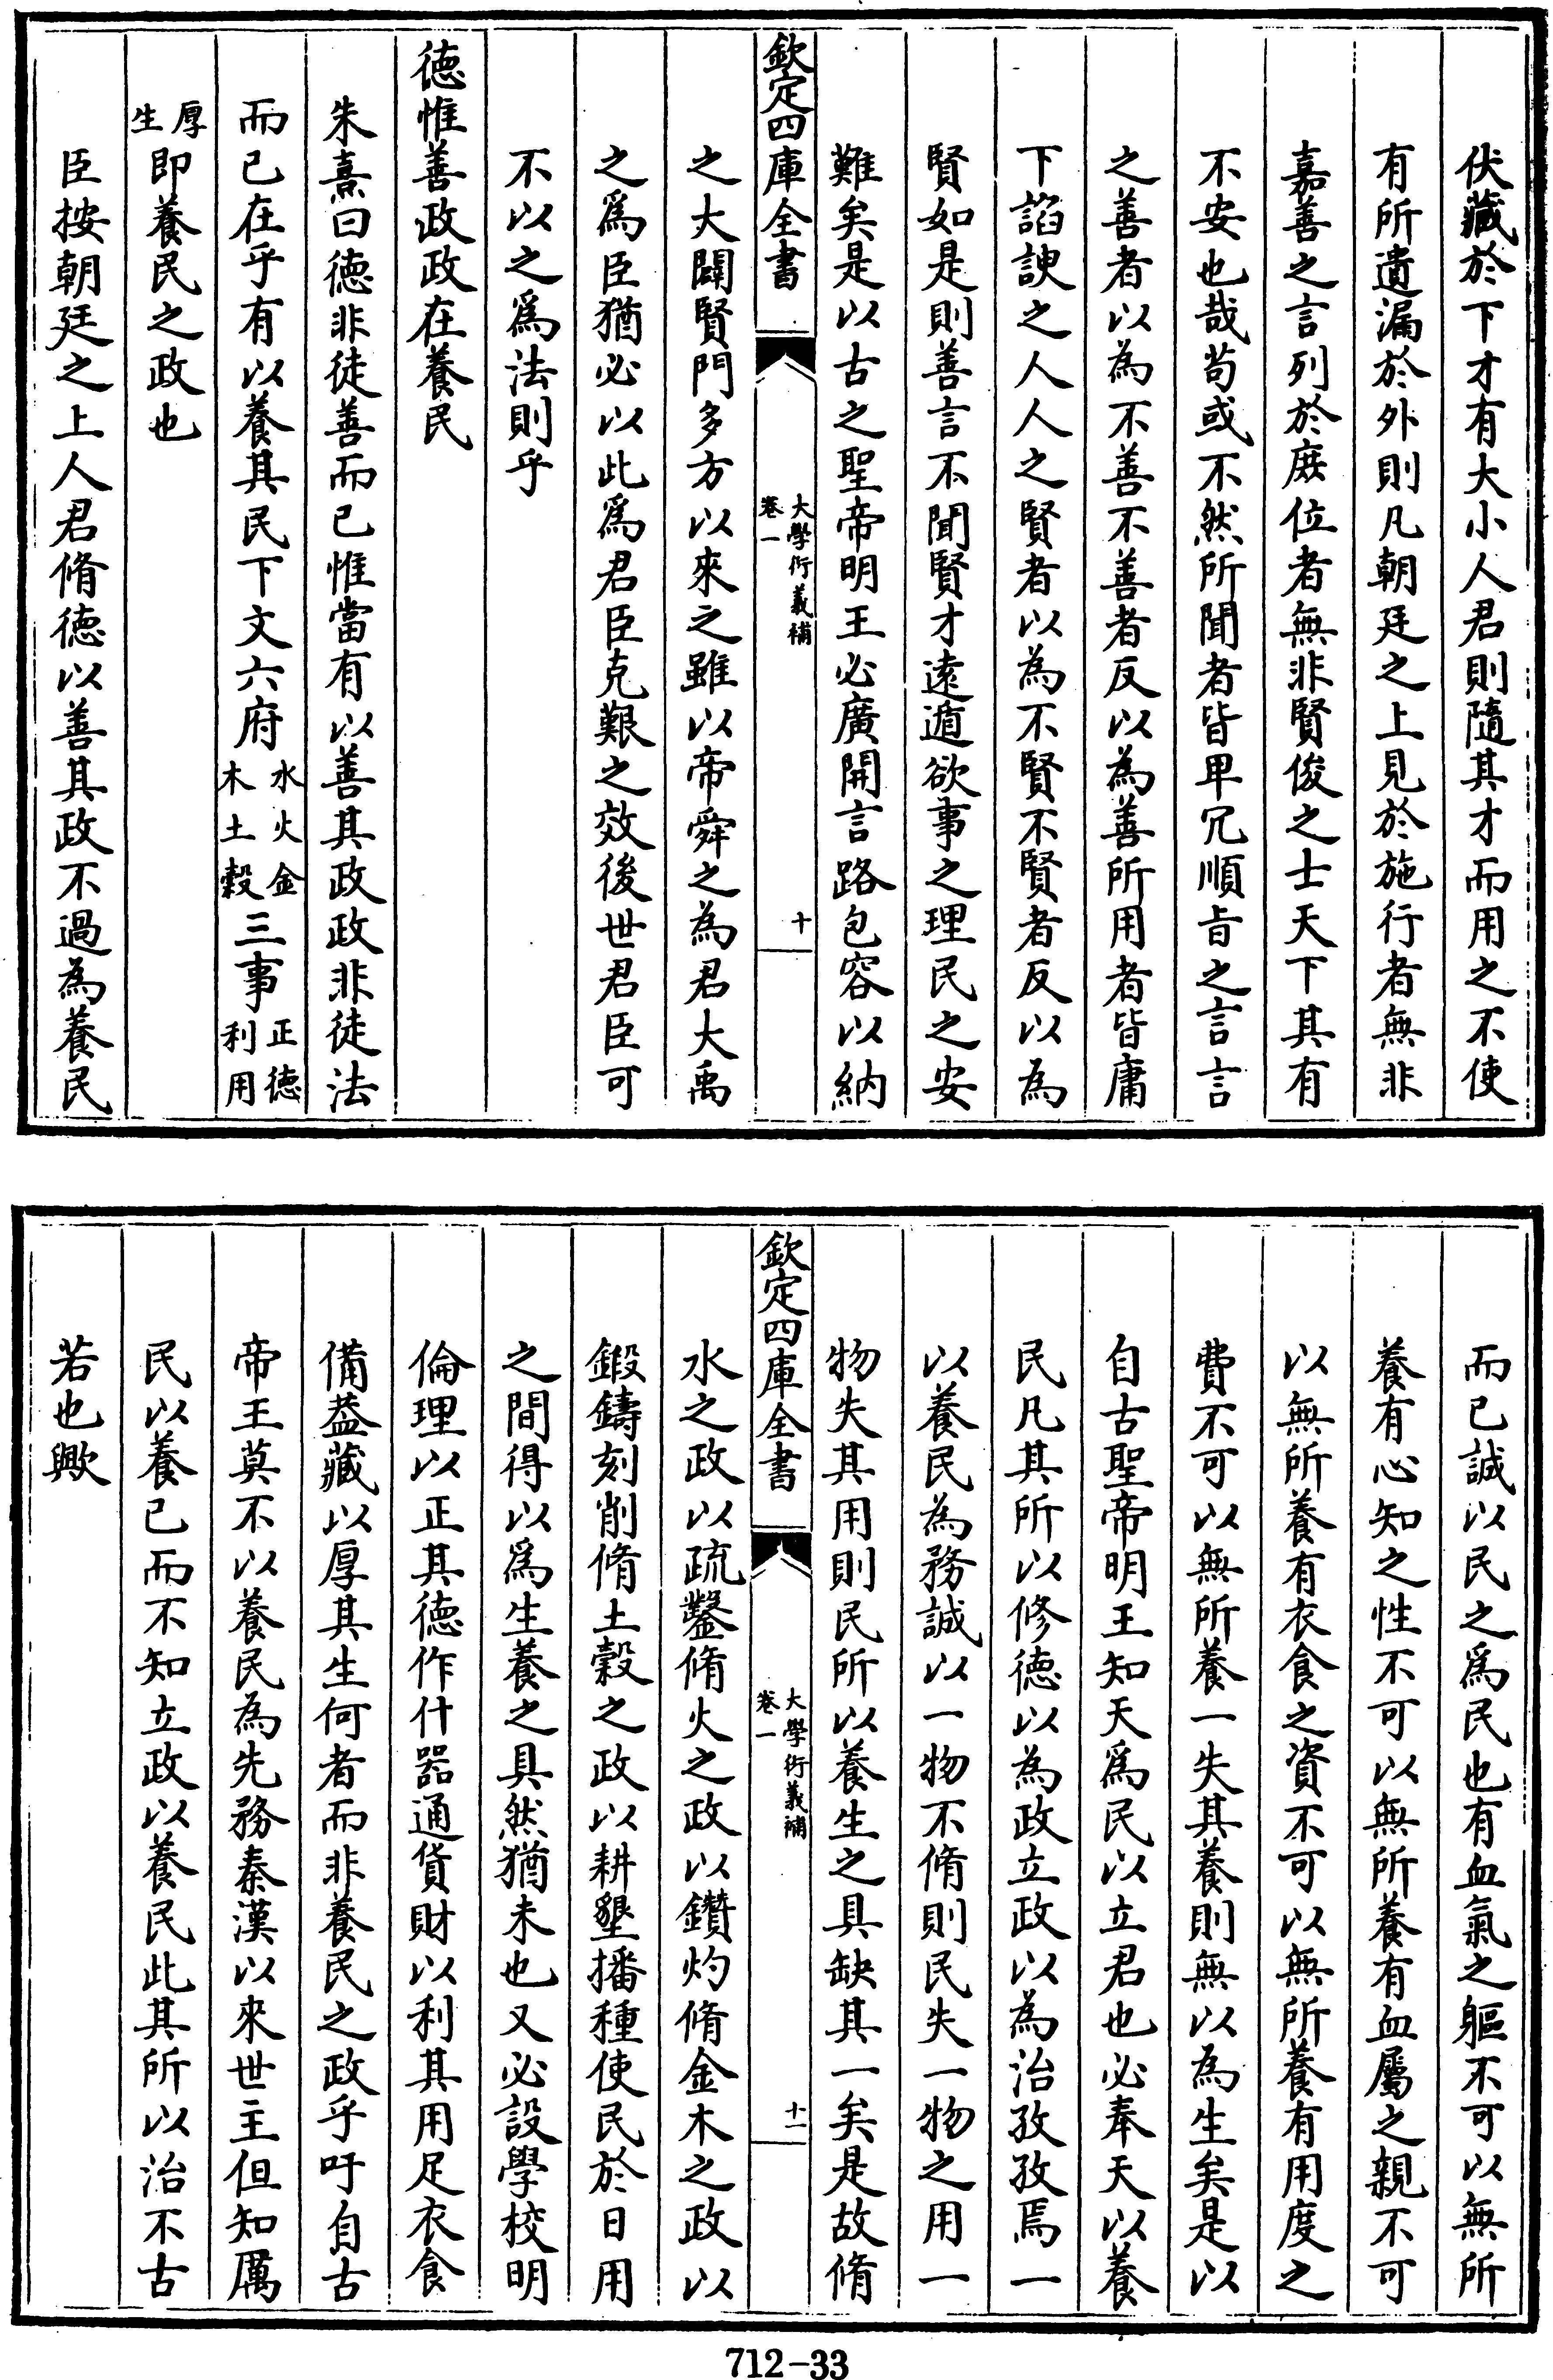 伏藏於下才有大小人君則隨其才而用之不使
有所遺漏於外則凡朝廷之上見於施行者無非
嘉善之言列於庶位者無非賢俊之士天下其有
不安也哉苟或不然所聞者皆卑冗順㫖之言言
之善者以為不善不善者反以為善所用者皆庸
下諂諛之人人之賢者以為不賢不賢者反以為
賢如是則善言不聞賢才遠遁欲事之理民之安
難矣是以古之聖帝明王必廣開言路包容以納
欽定四庫全書
大學衍義補
卷一
十
之大闢賢門多方以來之雖以帝舜之為君大禹
之爲臣猶必以此爲君臣克艱之效後世君臣可
不以之爲法則乎
德惟善政政在養民
朱熹曰德非徒善而已惟當有以善其政政非徒法
而已在乎有以養其民下文六府水火金木土穀三事正德利用
厚生即養民之政也
臣按朝廷之上人君脩德以善其政不過為養民
而已誠以民之爲民也有血氣之軀不可以無所
養有心知之性不可以無所養有血屬之親不可
以無所養有衣食之資不可以無所養有用度之
費不可以無所養一失其養則無以為生矣是以
自古聖帝明王知天爲民以立君也必奉天以養
民凡其所以修德以為政立政以為治孜孜焉一
以養民為務誠以一物不脩則民失一物之用一
物失其用則民所以養生之具缺其一矣是故脩
欽定四庫全書
大學衍義補
卷一
十一
水之政以疏鑿脩火之政以鑽灼脩金木之政以
鍛鑄刻削脩土穀之政以耕墾播種使民於日用
之間得以爲生養之具然猶未也又必設學校明
倫理以正其德作什器通貨財以利其用足衣食
備葢藏以厚其生何者而非養民之政乎吁自古
帝王莫不以養民為先務秦漢以來世主但知厲
民以養已而不知立政以養民此其所以治不古
若也歟
712-33